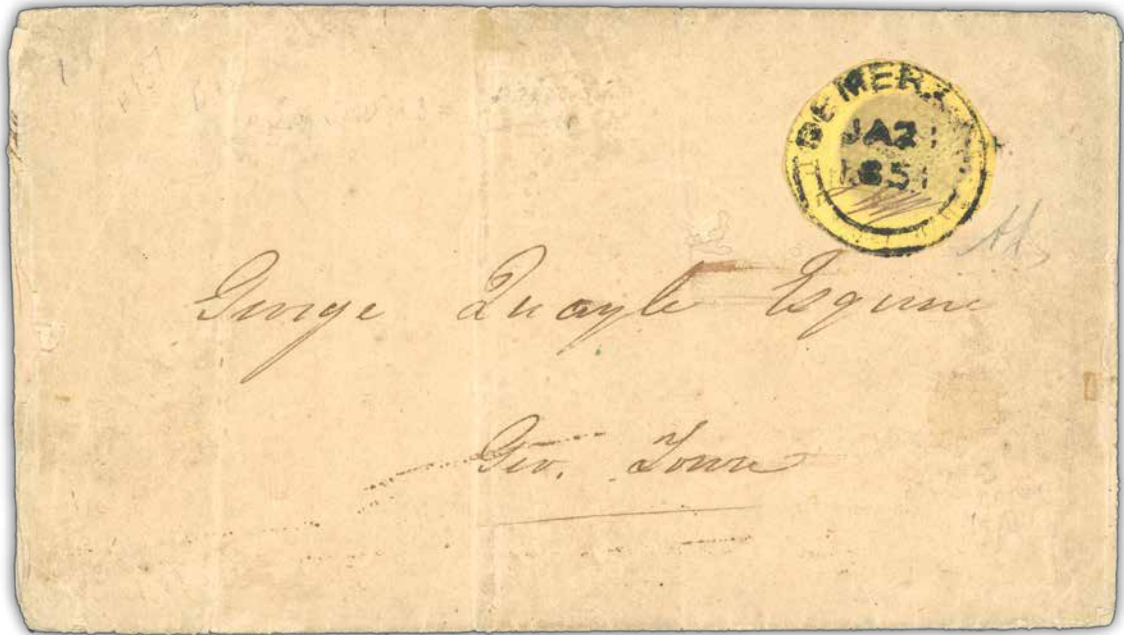 DEMERARA
JA21
1851
George Quayle Esquire
Geo. Town